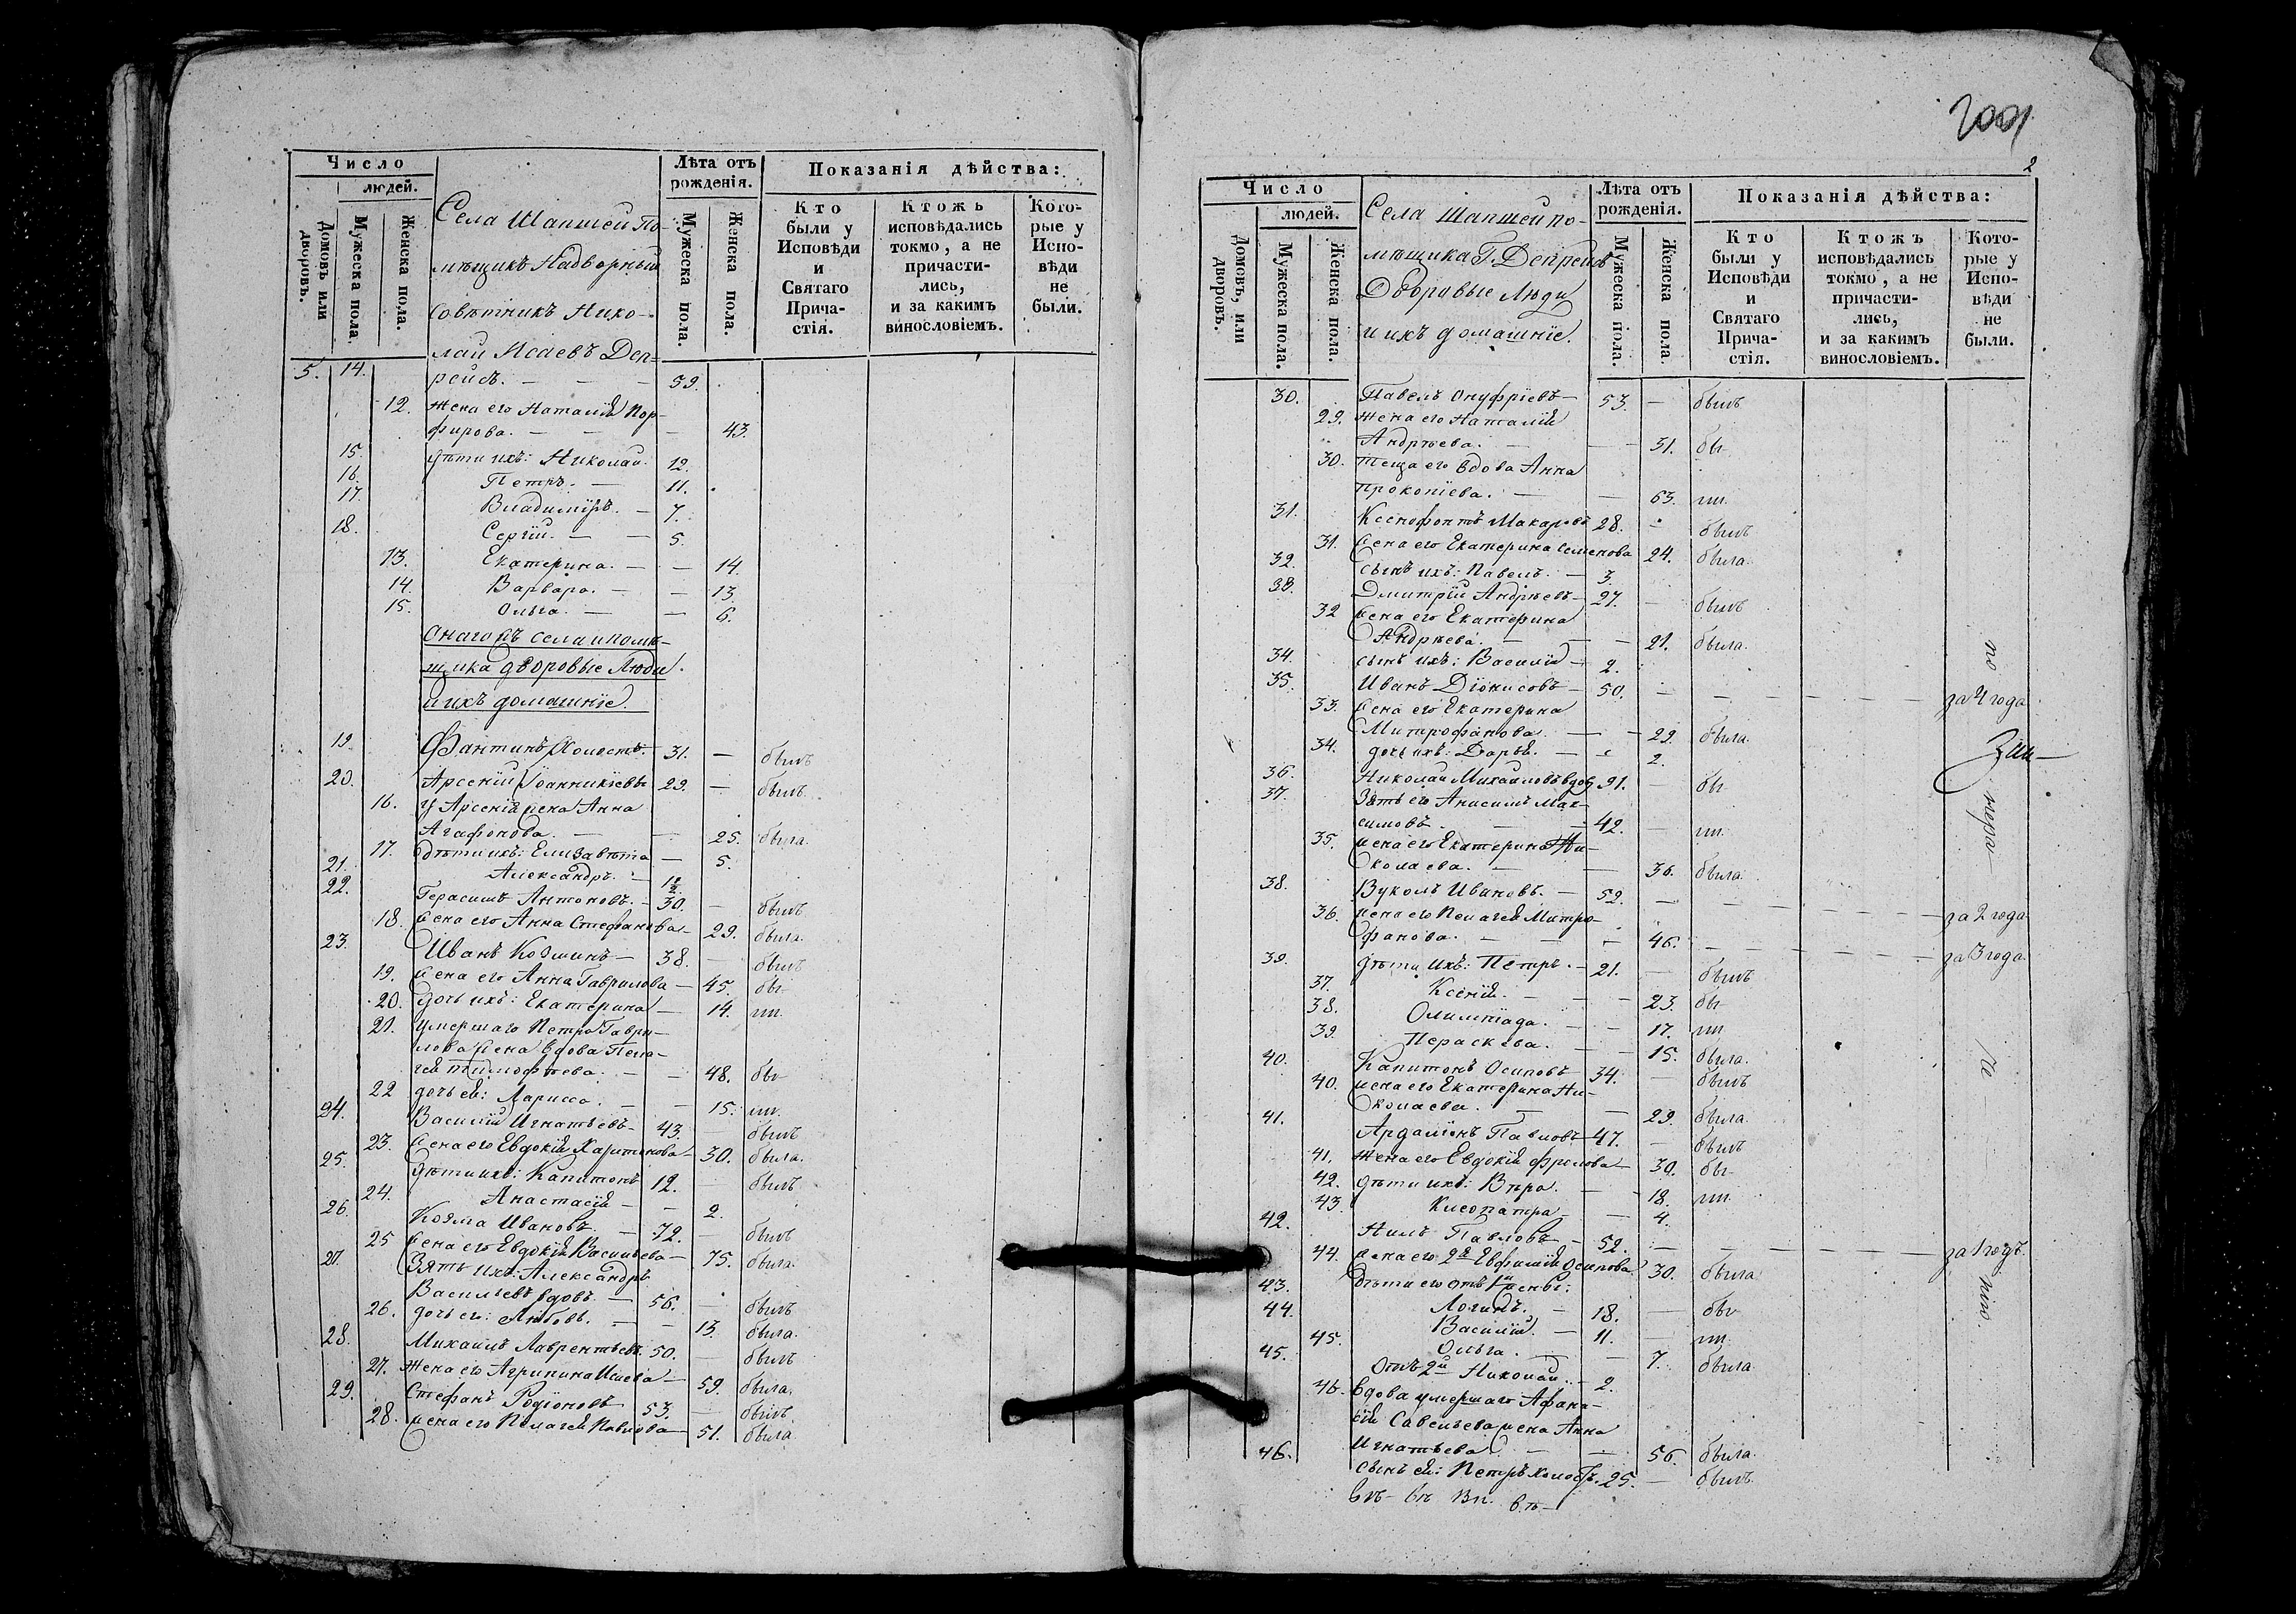 Число
людей.
Домовъ или дворовъ.
Мужеска пола.
Женска пола.
Села Шапшей По-
мѣщикъ Надворный
Совѣтникъ Нико-
лай Исаевъ Деп-
Лѣта отъ рожденія.
Мужеска пола.
Женска пола.
Показанія дѣйства:
Кто были у Исповѣди и Святаго Причастія.
Ктожъ исповѣдались токмо, а не причастились, и за какимъ винословіемъ.
Которые у Исповѣди не были.
5. 14. рейсъ. — — — 59.
12. жена его Наталія Пор-
фирова. — — — 43.
15. дѣти ихъ: Николай. 12.
16. Петръ. — 11.
17. Владимiръ. — 7.
18. Сергій. — — 5.
13. Екатерина. — — 14.
14. Варвара. — — 13.
15. Ольга. — — 6.
Онагожъ села и помѣ-
щика дворовые Люди
и ихъ домашніе.
19. Фантинъ Холостъ. — 31. — былъ
20. Арсеній Іоанникіевъ 29. — былъ
16. У Арсенія жена Анна
Агафонова. — — 25. была.
17. дѣти ихъ: Елизавѣта — 5.
21. Александръ. — 1/2
22. Герасимъ Антоновъ. — 30. — былъ
18. жена его Анна Стефанова — 29. была.
23. Иванъ Козминъ — 38. — былъ
19. жена его Анна Гаврилова — 45. бы-
20. дочь ихъ: Екатерина — 14. ли.
21. умершаго Петра Гаври-
лова жена вдова Пела-
гея Тимофѣева. — — 48. бы-
22 дочь ея: Ларисса. — — 15. ли.
24. Василій Игнатьевъ — 43. — былъ
23. жена его Евдокія Харитонова — 30. была.
25. дѣти ихъ: Капитонъ 12. — былъ
24. Анастасія — — 2.
26. Козма Ивановъ. — 72. — былъ
25 жена его Евдокія Васильева — 75. была.
27. Зять ихъ: Александръ
Васильевъ вдовъ. — 56. — былъ
26. дочь его: Любовь. — — 13. была.
28. Михаилъ Лаврентьевъ. 50. — былъ
27. Жена его Агрипина Исаева — 59. была.
29. Стефанъ Родіоновъ 53. — былъ
28. жена его Пелагея Павлова — 51. была
2
Число
людей.
Домовъ, или дворовъ.
Мужеска пола.
Женска пола.
Села Шапшей по-
мѣщика Г. Депрейсъ
Дворовые Люди
и ихъ домашніе.
Лѣта отъ рожденія.
Мужеска пола.
Женска пола.
Показанія дѣйства:
Кто были у Исповѣди и Святаго Причастія.
Ктожъ исповѣдались токмо, а не причастились, и за какимъ винословіемъ.
Которые у Исповѣди не были.
30. Павелъ Онуфріевъ — 53. — былъ
29. жена его Наталія
Андрѣева. — — — 31. бы-
30. теща его вдова Анна
Прокопіева. — — 63. ли.
31. Ксенофонтъ Макаровъ 28. — былъ
31. жена его Екатерина Семенова 24. была.
32. сынъ ихъ: Павелъ. — 3.
33. Дмитрій Андрѣевъ — 27. — былъ
32 жена его Екатерина
Андрѣева. — — — 21. была.
34. сынъ ихъ: Василій — 2.
35. Иванъ Діонисовъ — 50. — — — — за 4 года
33. жена его Екатерина
Митрофанова. — — 29. была.
34. дочь ихъ: Дарья. — 2.
36. Николай Михайловъ вдов 91. — бы-
37. Зять его Анисимъ Мак-
симовъ. — — 42. — ли.
35. жена его Екатерина Ни-
колаева. — — 36. была.
38. Вуколъ Ивановъ. — 52. — — — — за 2 года
36. жена его Пелагея Митро-
фанова. — — — 46. — — — за 3 года.
39. дѣти ихъ: Петръ. — 21. — былъ
37. Ксенія. — — — 23. бы-
38. Олимпіада. — — 17. ли
39. Параскева. — — 15. была.
40. Капитонъ Осиповъ 34. — былъ
40. жена его Екатерина Ни-
колаева. — — 29. была.
41. Ардаліонъ Павловъ — 47. — былъ
41. жена его Евдокія Фролова — 30. бы-
42. дѣти ихъ: Вѣра. — — 18. ли.
43. Клеопатра — — 4.
42. Нилъ Павловъ — 52. — — — — за 1 годъ.
44. жена его 2я Евфимія Осипова 30. была
дѣти его отъ 1й жены:
43. Логинъ. — 18. — бы-
44. Василій. — 11. — ли.
45. Ольга. — — 7. была
45. Отъ 2й Николай. — 2.
46. вдова умершаго Афана-
сія Савельева жена Анна
Игнатьева. — — 56. была.
46. сынъ ея: Петръ холостъ. 25. — былъ.